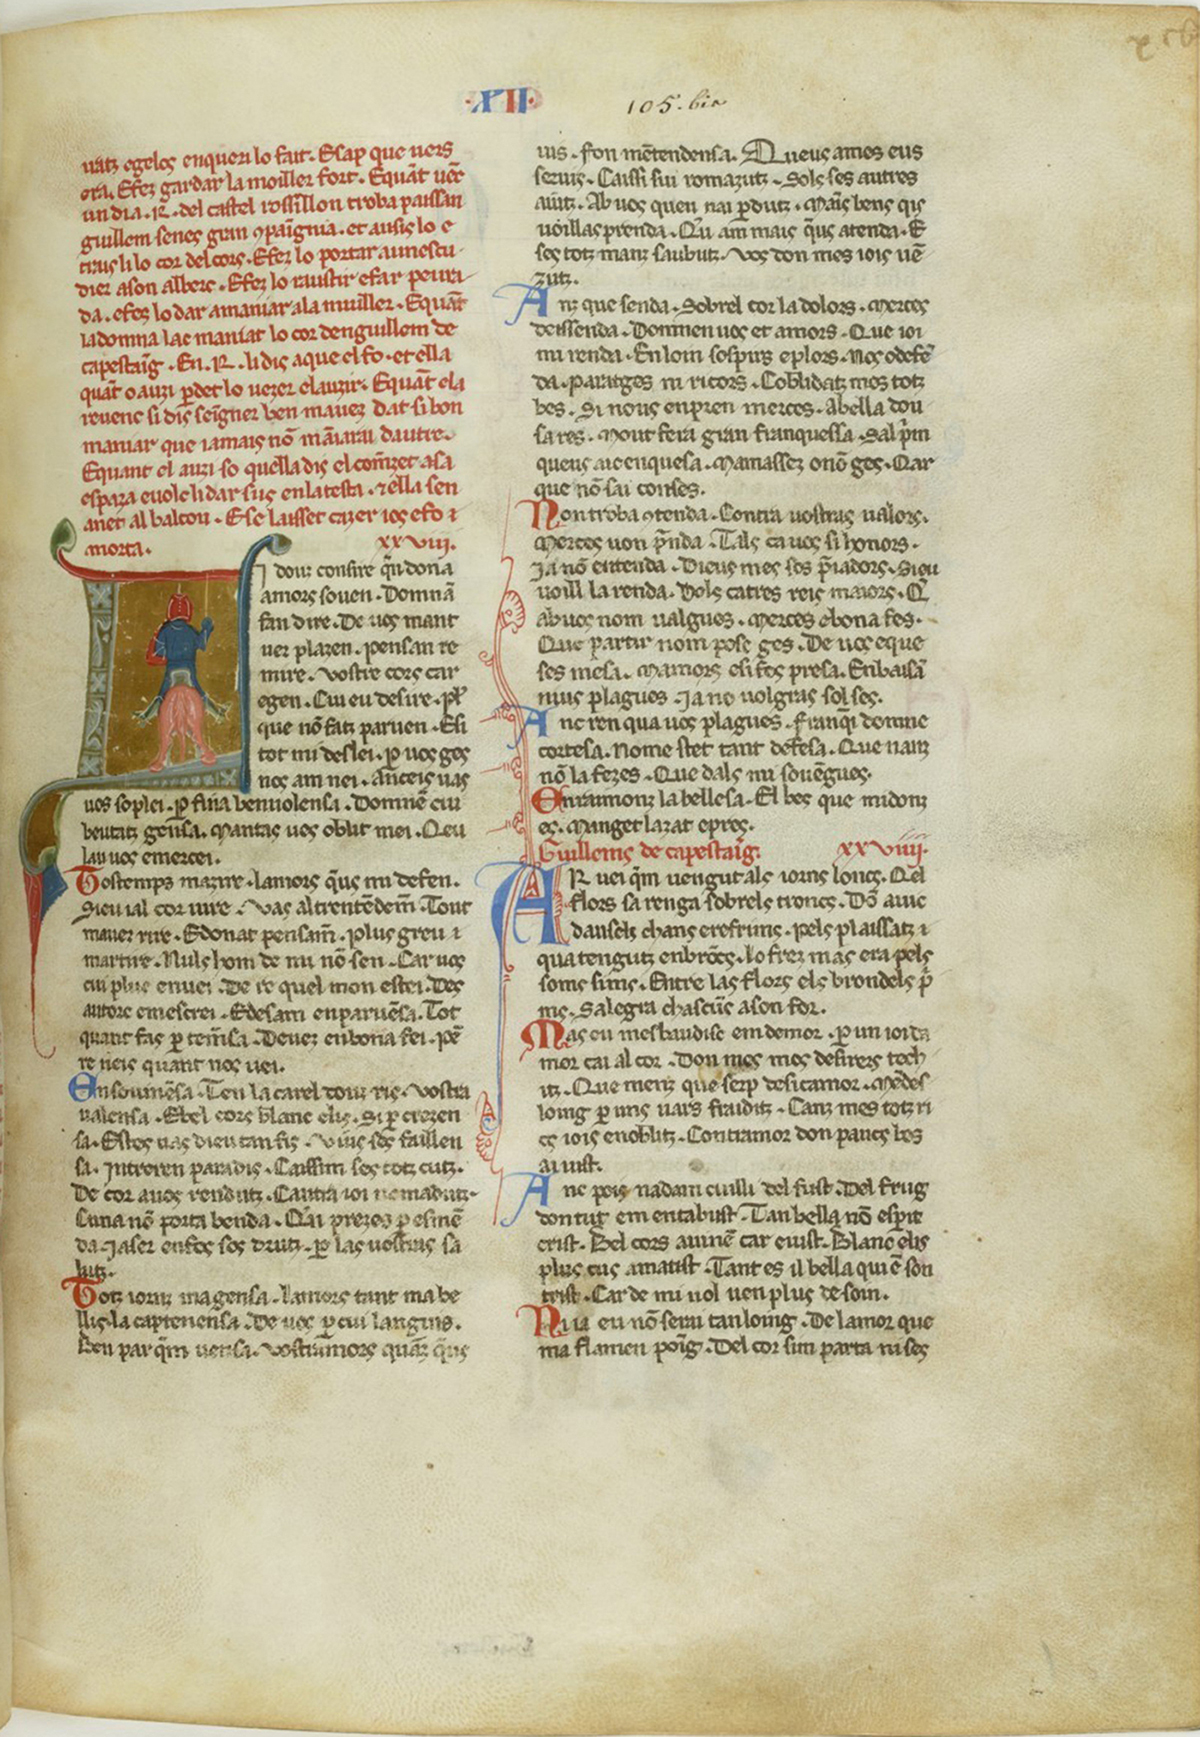 ·XII·
105. bis
uatz egelos enqueri lo fait. Esap que uers
era. Efez gardar la moiller fort. Equãt uẽc
un dia .R. del castel rossillon troba passan
guillem senes gran ꝯpaĩgnia. et ausis lo e
traus li lo cor del cors. Efez lo portar a un escu-
dier a son alberc. Efez lo raustir efar peura-
da. efes lo dar amaniar ala muiller. Equãt
la domna lac maniat lo cor den guillem de
capestaĩg. En .R. li dis aque el fo. et ella
quãt o auzi ꝑdet lo uezer elauzir. Equãt ela
reuenc si dis seĩgner ben mauez dat si bon
maniar que iamais nõ mãiarai dautre.
Equant el auzi so quella dis el corret asa
espaza euolc li dar sus en la testa. ⁊ ella sen
anet al balcon. Ese laisset cazer ios efo
morta.
xxviii.
Li douz consire q̃n dona
amors souen. Domnã
fan dire. De uos mant
uer plazen. pensan re
mire. vostre cors car
egen. Cui eu desire. pl̃
que nõ fatz paruen. Esi
tot mi deslei. p uos ges
nos am nei. Anceis uas
uos soplei. ꝑ fina benuolensa. Domnẽ cui
beutatz gẽnsa. Mantas ues oblit mei. Qeu
lau uos emercei.
Tostemps mazire. lamors q̃us mi defen.
Sieu ial cor uire. vas altrentẽdem̃. Tout
mauez rire. Edonat pensam̃. plus greu
martire. Nuls hom de mi nõ sen. Car uos
cui plus enuei. De re quel mon estei. Des
autorc emescrei. Edesam en paruẽsa. Tot
quant fas ꝑ tem̃sa. Deuez en bona fei. pẽ
re neis quant nos uei.
En souinẽsa. Ten la carel douz ris. vostra
ualensa. Ebel cors blanc elis. Si ꝑ crezen
sa. Estes uas dieu tan fis. viuis ses faillen
sa. Intreren paradis. Caissim ses totz cutz.
De cor auos rendutz. Cautra ioi nomadutz.
Cuna nõ porta benda. Qui prezes ꝑ esmẽ
da. Iaser enfos sos drutz. ꝑ las uostras sa
lutz.
Totz iornz magensa. lamors tant ma be
llis. la captenensa. De uos ꝑ cui languis.
Ben par q̃m uensa. vostramors quãz q̃us
uis. fon mẽtendensa. Queus ames eus
seruis. Caissi sui romazutz. Sols ses autres
aiutz. Ab uos quen nai ꝑdutz. Mais bens qis
uoillas prenda. Qui am mais q̃us atenda. E
ses totz manz saubutz. vos don mes iois uẽ
zutz.
Anz que senda. Sobrel cor la dolors. Merces
deissenda. Donmen uos et amors. Que ioi
mi renda. En lom sospirs eplors. Nos odefẽ
da. paratges ni ricors. Coblidatz mes totz
bes. Si nous enpren merces. Abella dou
sa res. Mout fera gran franquessa. Sal p̃m
queus aic enquesa. Mamassez o nõ ges. Qar
que nõ sai conses.
Non troba ꝯtenda. Contra uostras ualors.
Merces uon p̃nda. Tals ca uos si honors.
Ja nõ entenda. Dieus mes ses p̃iadors. Sieu
uoill la renda. Dels catres reis maiors. Q̃
abuos nom ualgues. Merces ebona fes.
Que partir nom pose ges. De uos eque
ses mesa. Mamors esi fos presa. En baisã
nius plagues. Ja no uolgras sol ses.
Anc ren qua uos plagues. Franq̃ domne
cortesa. Nome stet tant defesa. Que nanz
nõ la fezes. Que dals mi souẽgues.
En raimonz la bellesa. El bes que midonz
es. Manget lazat epres.
Guillems de capestaĩg.
xxviiii.
AR uei q̃m uengut als iorns loncs. Qel
flors sa renga sobrels troncs. Dõ auie
dauselz chans erefrims. pels plaissatz
qua tengutz enbrõcs. lo frez mas era pels
soms sims. Entre las flors els brondels p̃
ms. Salegra chascũs a son for.
Mas eu mesbaudisc em demor. ꝑ un ioi da
mor cai al cor. Don mos mos desirers toch
itz. Que menz que serp desicamor. Mẽdes
loing ꝑ uns uars fraiditz. Canz mes totz ri
cs iois enoblitz. Contramor don pauçs bos
aiust.
Anc peis nadam cuilli del fust. Del frug
don tuz em entabust. Tan bella nõ espie
crist. Bel cors auinẽ car euist. Blanc elis
plus cus amatist. Tant es il bella qui ẽ son
trist. Car de mi nol uen plus de soin.
Ni ia eu nõ serai tan loing. De lamor que
ma flamen poĩg. Del cor sim parta ni ses